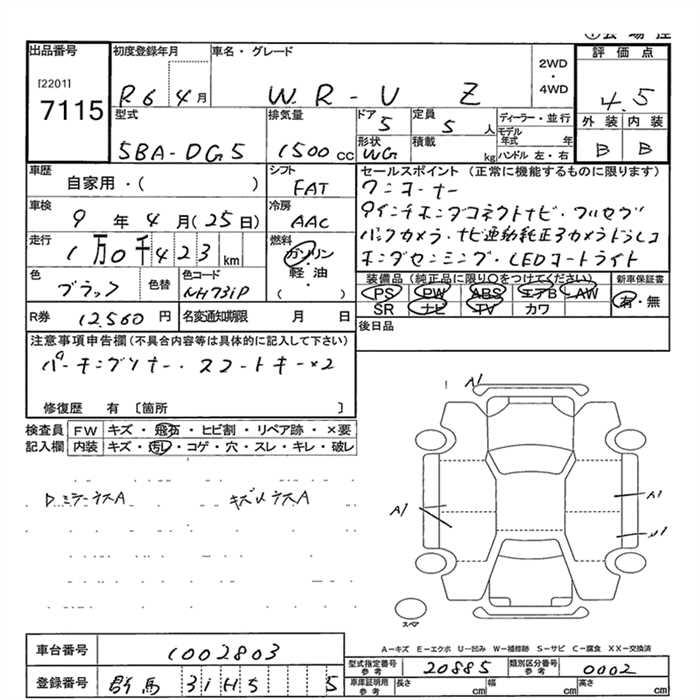 出品番号
[2201]
7115
初度登録年月
R6 4月
車名・グレード
WR-V Z
2WD
・
4WD
評価点
4.5
外装 内装
B B
型式
5BA-DG5
排気量
1500 cc
ドア
5
定員
5 人
形状
WG
積載
kg
ディーラー・並行
モデル年式 年
ハンドル 左・右
車歴
自家用・( )
シフト
FAT
車検
9年4月(25日)
冷房
AAC
走行
1万0千423km
燃料
ガソリン
・
軽油
・
( )
色
ブラック
色替
色コード
NH731P
R券 12,560 円
名変通知期限 月 日
セールスポイント (正常に機能するものに限ります)
ワンオーナー
9インチホンダコネクトナビ・フルセグ
バックカメラ・ナビ連動純正カメラドラレコ
ホンダセンシング・LEDオートライト
装備品 (純正品に限り○をつけてください)
PS PW ABS エアB AW
SR ナビ TV カワ
新車保証書
有・無
後日品
注意事項申告欄 (不具合内容等は具体的に記入して下さい)
パーキングソナー・スマートキー×2
修復歴 有 〔箇所 〕
検査員記入欄
FW キズ・飛石・ヒビ割・リペア跡・×要
内装 キズ・汚レ・コゲ・穴・スレ・キレ・破レ
A1
A1
A1
スペア
A-キズ E-エクボ U-凹み W-補修跡 S-サビ C-腐食 XX-交換済
車台番号 1002803
登録番号 群馬 31H5 5
型式指定番号 参考 20885
類別区分番号 参考 0002
車庫証明用 参考 長さ cm 幅 cm 高さ cm